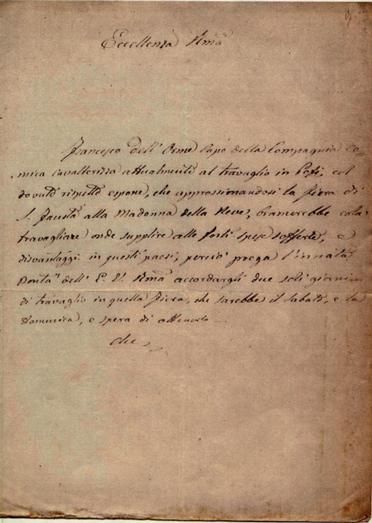 Eccellenza Rma
Francesco dell' Orme Capo della Compagnia Co-
mica cavallerizza attualmente al travaglio in Pofi, col
dovuto rispetto espone, che approssimandosi la Fiera di
S. alla Madonna della Neve, bramerebbe colà
travagliare onde supplire alle forti spese sofferte, e
disvantaggi in questi paesi, perciò prega l'innata
Bontà dell' E. V. Rma accordargli due soli giorni
di travaglio in quella Fiera, che sarebbe il Sabato, e la
Domenica, e spera di
che